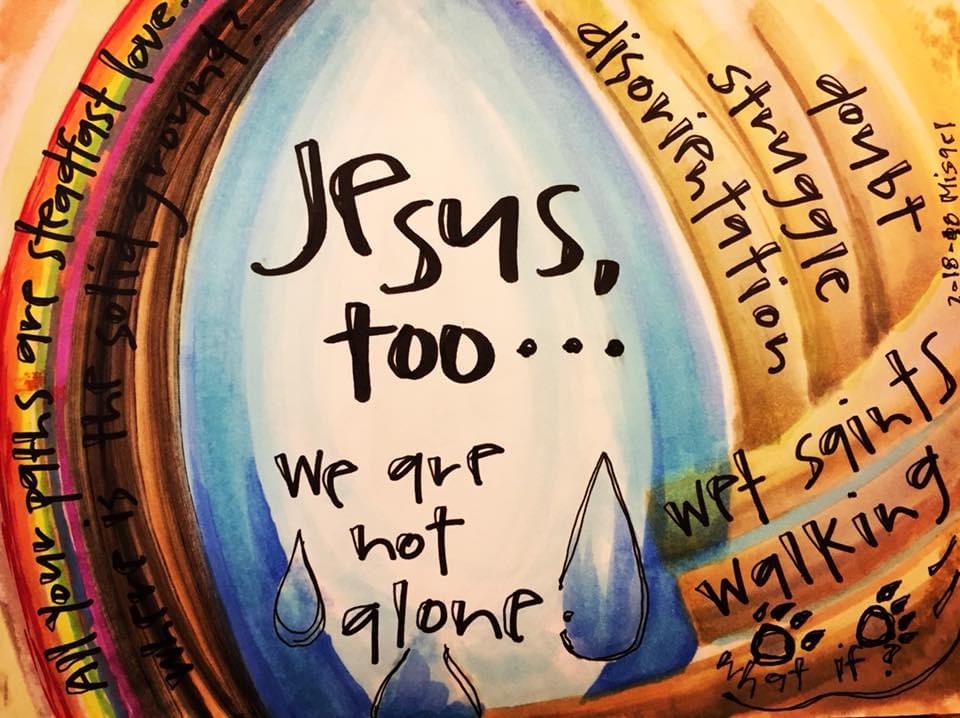 All Your paths are steadfast love..
Where is the solid ground?
Jesus,
too...
we are
not
alone
disorientation
struggle
doubt
wet saints
walking
what if?